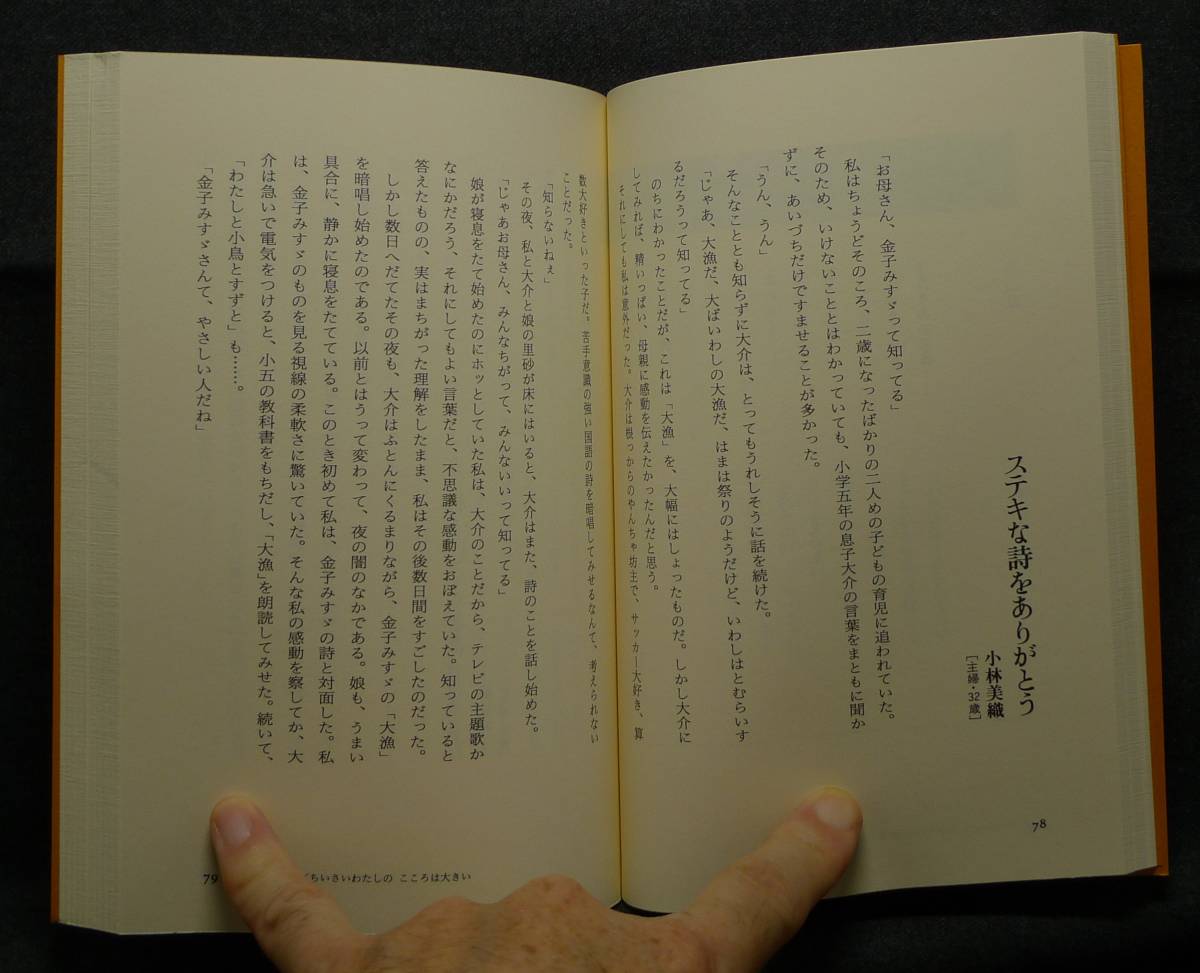 ステキな詩をありがとう
小林美織
［主婦・32歳］
「お母さん、金子みすゞって知ってる」
私はちょうどそのころ、二歳になったばかりの二人めの子どもの育児に追われていた。
そのため、いけないこととはわかっていても、小学五年の息子大介の言葉をまともに聞か
ずに、あいづちだけですませることが多かった。
「うん、うん」
そんなこととも知らずに大介は、とってもうれしそうに話を続けた。
「じゃあ、大漁だ、大ばいわしの大漁だ、はまは祭りのようだけど、いわしはとむらいす
るだろうって知ってる」
のちにわかったことだが、これは「大漁」を、大幅にはしょったものだ。しかし大介に
してみれば、精いっぱい、母親に感動を伝えたかったんだと思う。
それにしても私は意外だった。大介は根っからのやんちゃ坊主で、サッカー大好き、算
78
数大好きといった子だ。苦手意識の強い国語の詩を暗唱してみせるなんて、考えられない
ことだった。
「知らないねぇ」
その夜、私と大介と娘の里砂が床にはいると、大介はまた、詩のことを話し始めた。
「じゃあお母さん、みんなちがって、みんないいって知ってる」
娘が寝息をたて始めたのにホッとしていた私は、大介のことだから、テレビの主題歌か
なにかだろう、それにしてもよい言葉だと、不思議な感動をおぼえていた。知っていると
答えたものの、実はまちがった理解をしたまま、私はその後数日間をすごしたのだった。
しかし数日へだてたその夜も、大介はふとんにくるまりながら、金子みすゞの「大漁」
を暗唱し始めたのである。以前とはうって変わって、夜の闇のなかである。娘も、うまい
具合に、静かに寝息をたてている。このとき初めて私は、金子みすゞの詩と対面した。私
は、金子みすゞのものを見る視線の柔軟さに驚いていた。そんな私の感動を察してか、大
介は急いで電気をつけると、小五の教科書をもちだし、「大漁」を朗読してみせた。続いて、
「わたしと小鳥とすずと」も……。
「金子みすゞさんて、やさしい人だね」
79
ちいさいわたしの こころは大きい